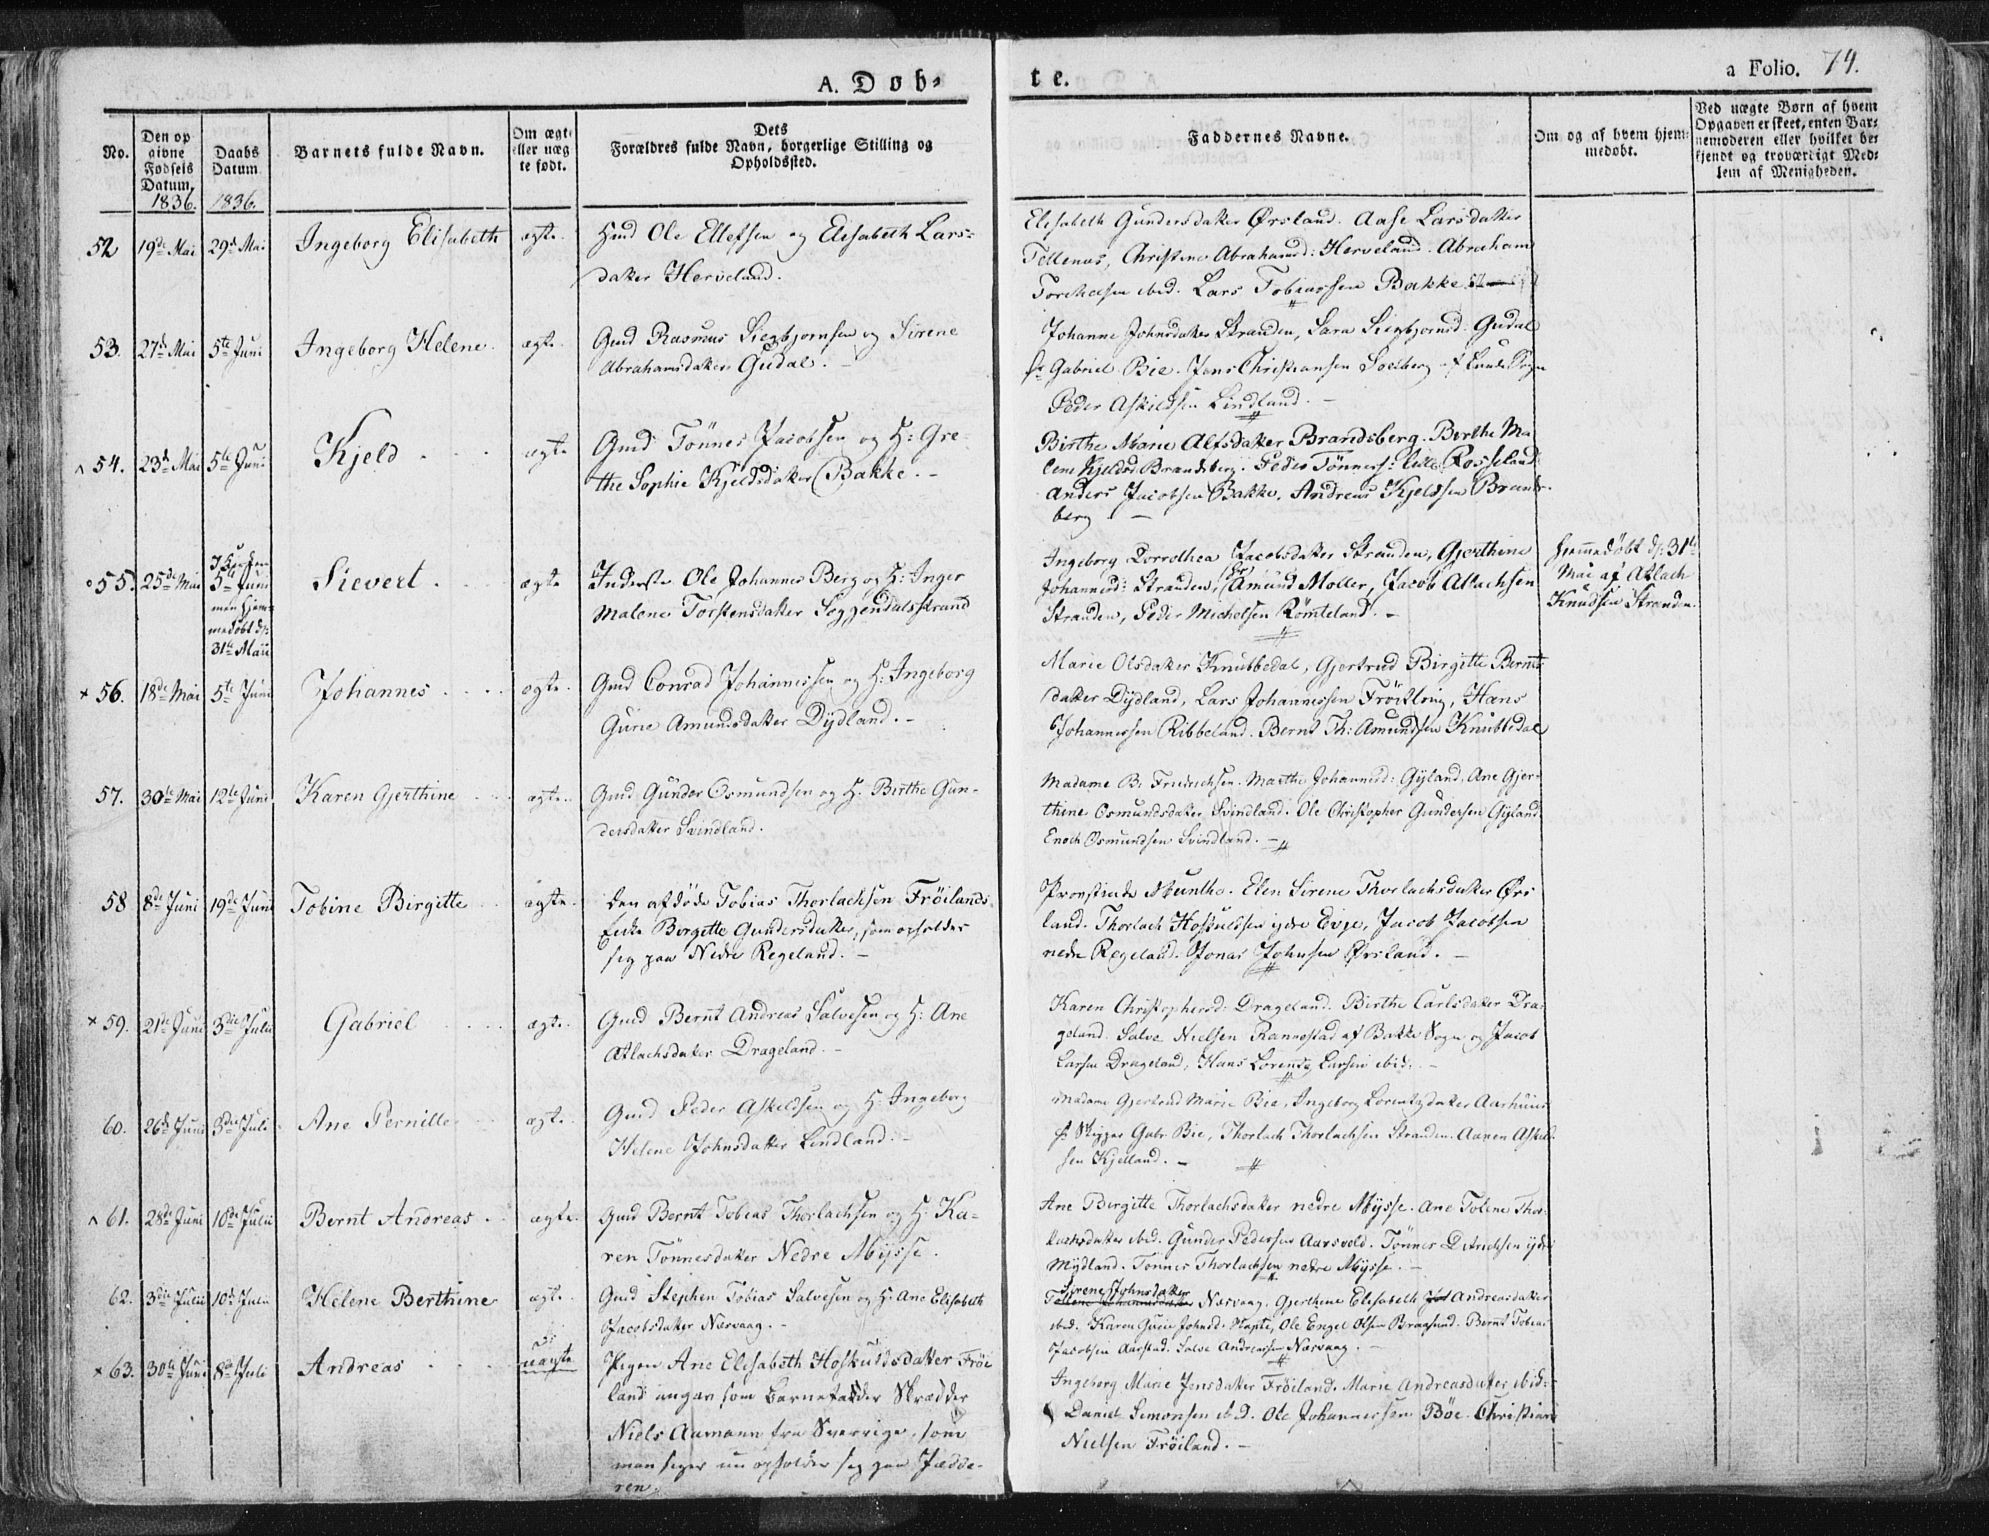 A. Døb-
te.
a Folio. 74.
No.
Den opgivne Fødsels Datum. 1836.
Daabs Datum 1836.
Barnets fulde Navn.
Om ægte eller uægte født.
Dets Forældres fulde Navn, borgerlige Stilling og Opholdssted.
Faddernes Navne.
Om og af hvem hjemmedøbt.
Ved uægte Børn af hvem Opgaven er skeet, enten Barnemoderen eller hvilket bekjendt og troværdigt Medlem af Menigheden.
52 19de Mai 29de Mai Ingeborg Elisabeth ægte. Ole Ellefsen og Elisabeth Lars-
datter Herveland.
Elisabeth Gundersdatter Ørsland. Aase Larsdatter
Tellenes, Christine Abrahamsd: Herveland. Abraham
ibid. Lars Tobiassen Bakke
53. 27de Mai 5te Juni Ingeborg Helene. ægte. Gmd Rasmus Siegbjørnsen og Sirene
Abrahamsdatter Gudal. -
Johanne Johnsdatter Stranden, Sara Siegbjørnsd: Gudal
Sr Gabriel Bie. Jens Christiansen Soelberg af Lunde Sogn
Peder Askildsen Lindland. -
54. 23de Mai 5te Juni Kjeld ægte Gmd Tønnes Jacobsen og H: Gre-
the Sophie Kjeldsdatter Bakke. -
Birthe Marie Alfsdatter Brandsberg. Berthe Ma
lene Kjeldsd Brandsberg. Peder Tønness: lille Rosseland
Anders Jacobsen Bakke, Andreas Kjeldsen Brands-
berg -
55. 25de Mai 5te Juni men hjem-
medøbt d:
31te Maii
Sievert ægte Inderste Ole Johannes Berg og H: Inger
Malene Torstensdatter Soggendalsstrand
Ingeborg Dorrothea Jacobsdatter Stranden, Gjerthine
Johannesd: Stranden, Sr Amund Moller, Jacob Atlachsen
Stranden, Peder Michelsen Rømteland. -
hjemmedøbt d: 31te
Mai af Atlach
Knudsen Stranden.
56. 18de Mai 5te Juni Johannes ægte. Gmd Conrad Johannessen og H: Ingeborg
Gurie Amundsdatter Dydland. -
Marie Olsdatter Knubbedal, Gjertrud Birgitte Bernts
datter Dydland, Lars Johannessen Frøitlog, Hans
Johannessen Ribbeland. Bernt Th: Amundsen Knubbedal
57. 30te Mai 12te Juni Karen Gjerthine ægte. Gmd Gunder Osmundsen og H. Birthe Gun-
dersdatter Svindland.
Madame B: Friedrichsen. Marthe Johannesd: Gyland. Ane Gjer-
thine Osmundsdatter Svindland. Ole Christopher Gundersen Gyland
Enoch Osmundsen Svindland. -
58 8de Juni 19de Juni Tobine Birgitte ægte. Den afdøde Tobias Thorlachsen Frøilands
Enke Birgitte Gundersdatter, som opholder
sig paa Nedre Regeland. -
Provstinde Munthe. Elen Sirene Thorlachsdatter Ørs
land. Thorlach Hoskuldsen ydre Evje, Jacob Jacobsen
nedre Regeland. Jonas Johnsen Ørsland. -
59. 21de Juni 3die Julii Gabriel ægte. Gmd Bernt Andreas Salvesen og H: Ane
Atlachsdatter Drageland. -
Karen Christophersd: Drageland. Birthe Carlsdatter Dra-
geland. Salve Nielsen Rannestad af Bakke Sogn og Jacob
Larsen Drageland, Hans Lorentz Larsen ibid: -
60. 26de Juni 3die Juli Ane Pernille ægte. Gmd Peder Askeldsen og H: Ingeborg
Helene Johnsdatter Lindland. -
Madame Gjertrud Marie Bie, Ingeborg Lorentzdatter Aarhuus
Sr Skipper Gabr Bie, Thorlach Thorlachsen Stranden. Aanen Askild-
sen Kjelland. -
61. 28de Juni 10de Julii Bernt Andreas ægte. Gmd Bernt Tobias Thorlachsen og H. Ka-
ren Tønnesdatter Nedre Mysse.
Ane Birgitte Thorlachsdatter nedre Mysse. Ane Tolene Thor-
lachsdatter ibid. Gunder Pedersen Aarsvold. Tønnes Ditrichsen ydre
Mydland. Tønnes Thorlachsen nedre Mysse. -
62. 3die Julii 10de Julii Helene Berthine ægte. Gmd Stephen Tobias Salvesen og H: Ane Elisabeth
Jacobsdatter Næsvaag. -
Sirene Johnsdatter
Næsvaag. Gjerthine Elisabeth Andreasdatter
ibid. Karen Gurie Johnsd: Stapte, Ole Engel Olsen Braasund. Bernt Tobias
Jacobsen Aarstad. Salve Andreassen Næsvaag. -
63. 30te Juni 8de Juli Andreas uægte Pigen Ane Elisabeth Hoskuldsdatter Frøi
land angav som Barnefader Skrædder
Niels Aamann fra Sverrige, som
man siger nu opholder sig paa Jædde-
ren.
Ingeborg Marie Jensdatter Frøiland. Marie Andreasdatter ibid:
Daniel Simonsen ibid. Ole Johannessen Bøe. Christian
Nielsen Frøiland. -